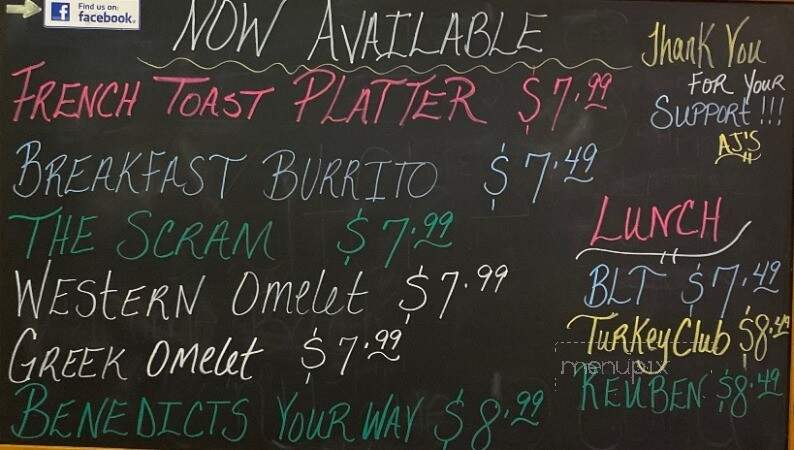 Find us on:
facebook.
NOW AVAILABLE
FRENCH TOAST PLATTER $7.99
BREAKFAST BURRITO $7.49
THE SCRAM $7.99
WESTERN Omelet $7.99
GREEK Omelet $7.99
BENEDICTS YOUR WAY $8.99
Thank You
FOR YOUR
SUPPORT!!!
AJ'S
LUNCH
BLT $7.49
Turkey Club $8.49
REUBEN $8.49
menupix